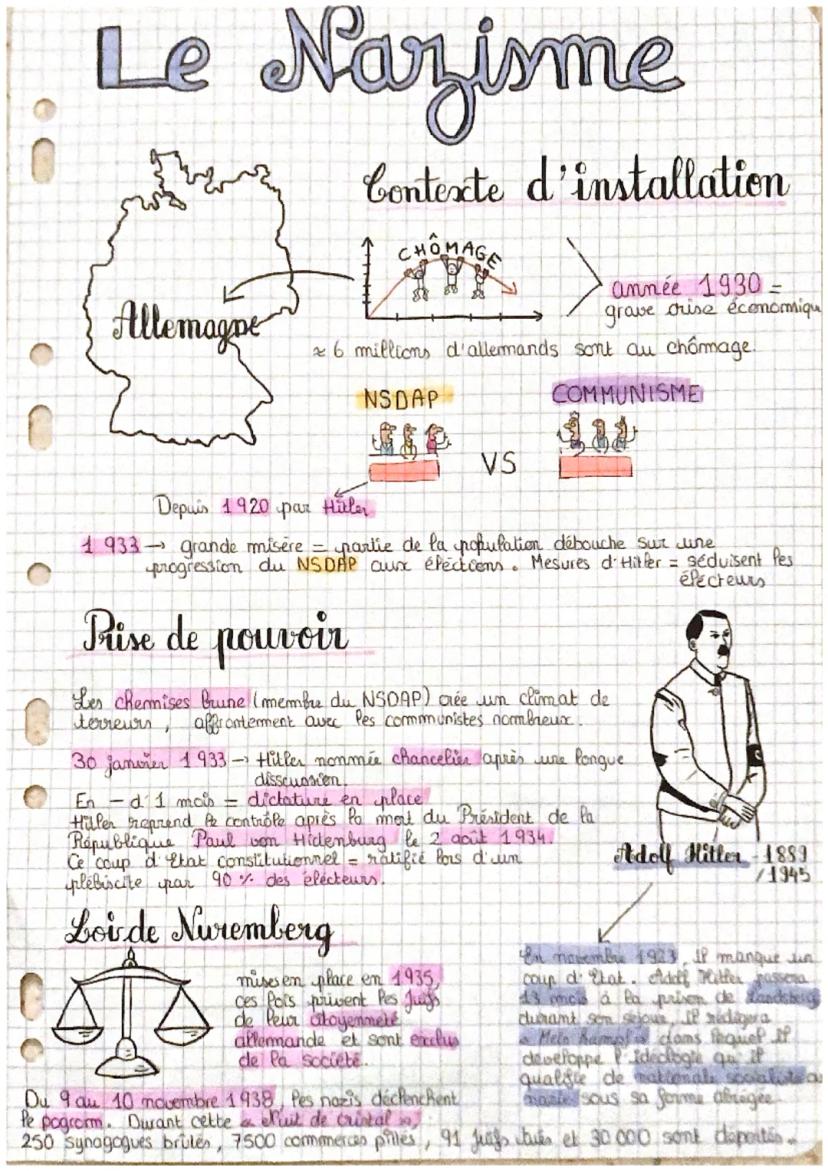 Le Nazisme
Contexte d'installation
CHÔMAGE
année 1930 =
grave crise économiqu
Allemagne
≈ 6 millions d'allemands sont au chômage.
NSDAP
COMMUNISME
VS
Depuis 1920 par Hitler
1933 → grande misère = partie de la population débouche sur une
progression du NSDAP aux éléctions. Mesures d'Hitler = séduisent les
électeurs
Prise de pouvoir
Les chemises brune (membre du NSDAP) crée un climat de
terreurs, affrontement avec les communistes nombreux.
30 janvier 1933 → Hitler nommée chancelier après une longue
disscussion.
En - d'1 mois = dictature en place
Hitler reprend le contrôle après la mort du Président de la
République Paul von Hidenburg le 2 août 1934.
Ce coup d'Etat constitutionnel = ratifié lors d'un
plébiscite par 90 % des électeurs.
Adolf Hitler - 1889
/1945
Loi de Nuremberg
mises en place en 1935,
ces lois privent les Juifs
de leur citoyenneté
allemande et sont exclus
de la société.
En novembre 1923, il manque un
coup d'Etat. Adolf Hitler passera
13 mois à la prison de Landsberg
durant son séjour, il rédigera
« Mein Kampf » dans lequel il
développe l'idéologie qu'il
qualifie de nationale socialiste ou
nazie sous sa forme abrégée.
Du 9 au 10 novembre 1938, les nazis déclenchent
le pogrom. Durant cette « Nuit de cristal »,
250 synagogues brûlés, 7500 commerces pillés, 91 juifs tués et 30 000 sont déportés.